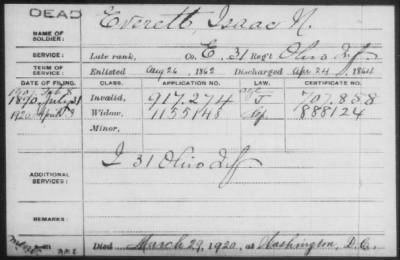 DEAD
NAME OF SOLDIER: Everett, Isaac N.
SERVICE: Late rank, Co. E, 31 Reg't Ohio Inf
TERM OF SERVICE: Enlisted Aug 26, 1862 Discharged Apr 24, 1864
DATE OF FILING. CLASS. APPLICATION NO. LAW. CERTIFICATE NO.
1890, July 31 Invalid, 917.274 J 707.858
1920, April 8 Widow, 1155148 1888124
Minor,
ADDITIONAL SERVICES: I 31 Ohio Inf
REMARKS:
Died March 29, 1920, at Washington, D.C.